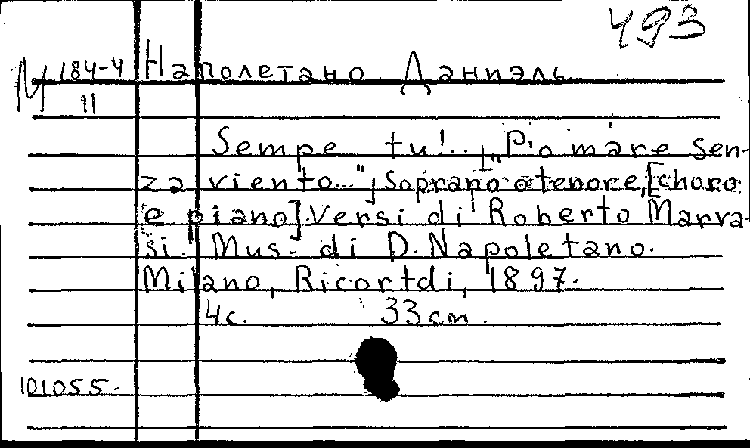 493
М 184-4
11
Наполетано Даниэль
Sempe tu!.. ["P'o mare sen-
za viento..."] Soprano o tenore, [choro
e piano]. Versi di Roberto Marva-
si. Mus. di D. Napoletano.
Milano, Ricortdi, 1897.
4с. 33 cm.
101055.